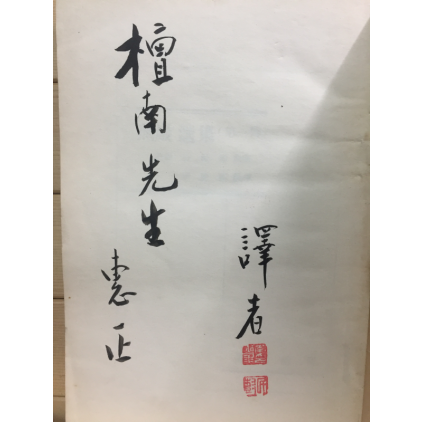 檀南先生 惠正
譯者